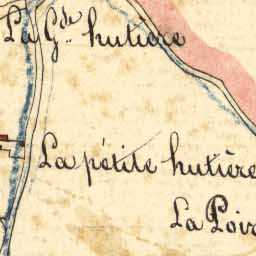 La Gde hutière
La pétite hutière
La Poir